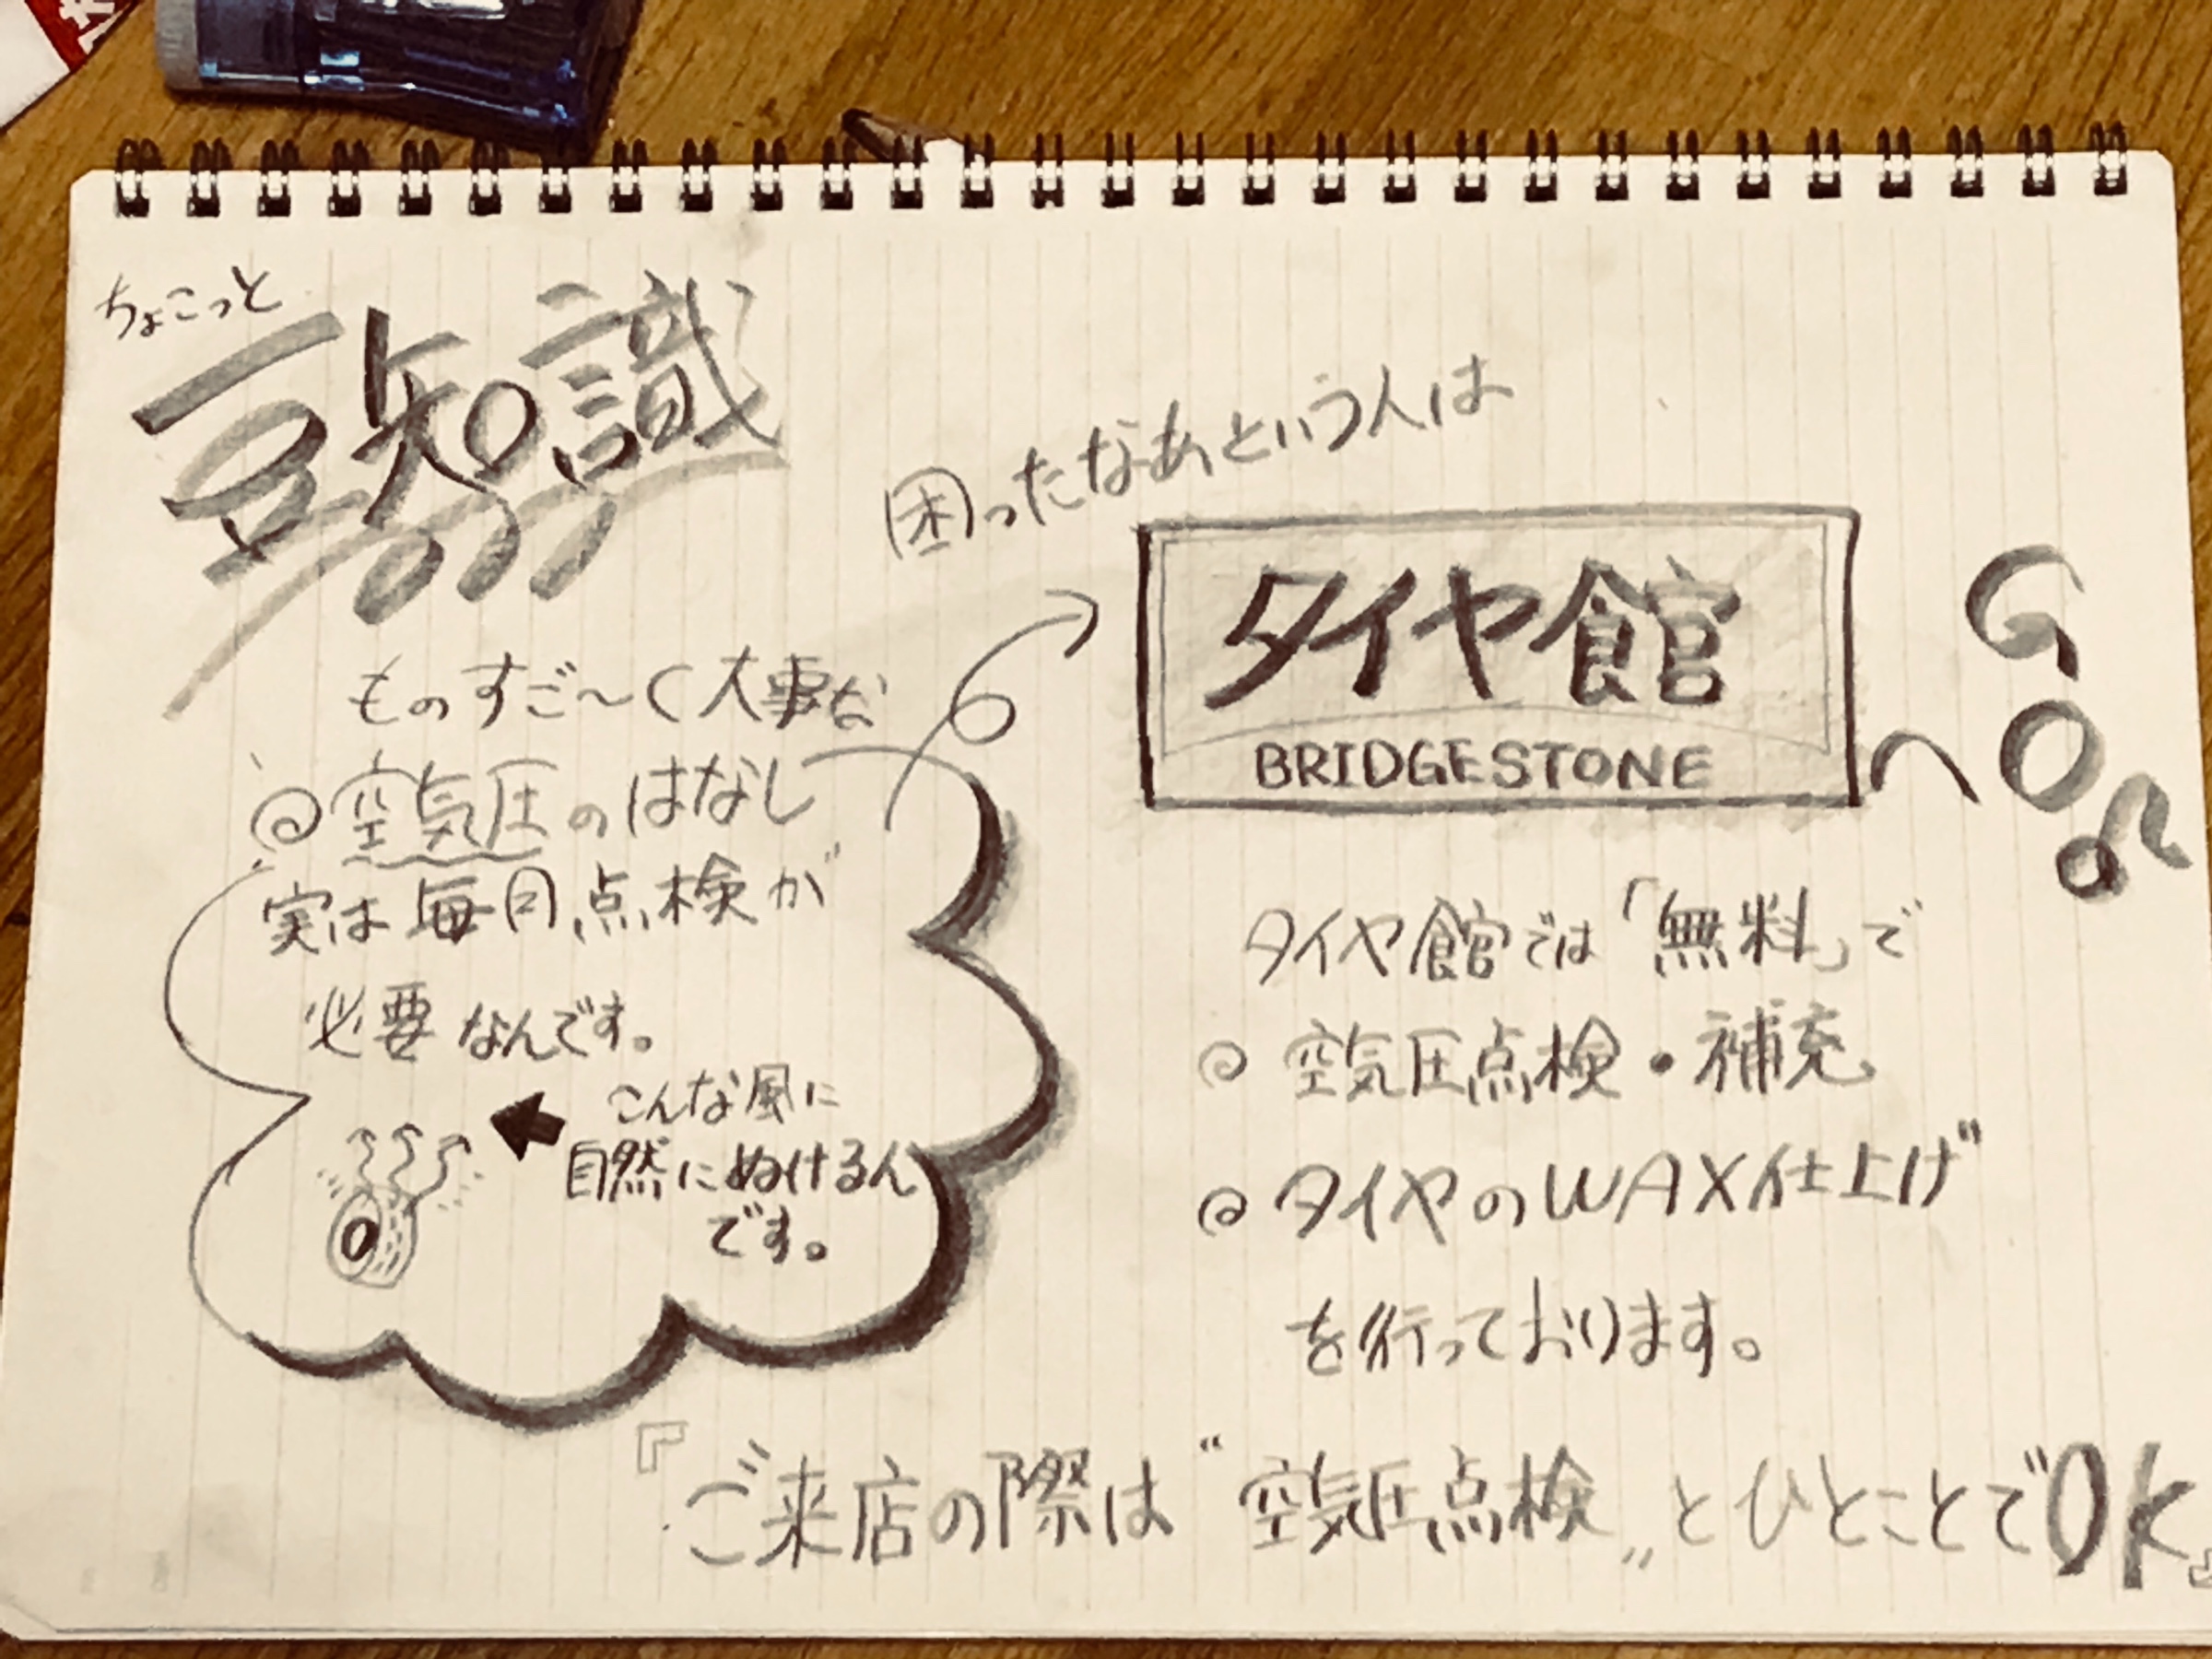 ちょこっと
豆知識
ものすご〜く大事な
◎空気圧のはなし
実は毎月点検が
必要なんです。
こんな風に
自然にぬけるん
です。
困ったなあという人は
タイヤ館
BRIDGESTONE
GO!
タイヤ館では「無料」で
◎空気圧点検・補充
◎タイヤのWAX仕上げ
を行っております。
『ご来店の際は“空気圧点検„とひとことでOK』